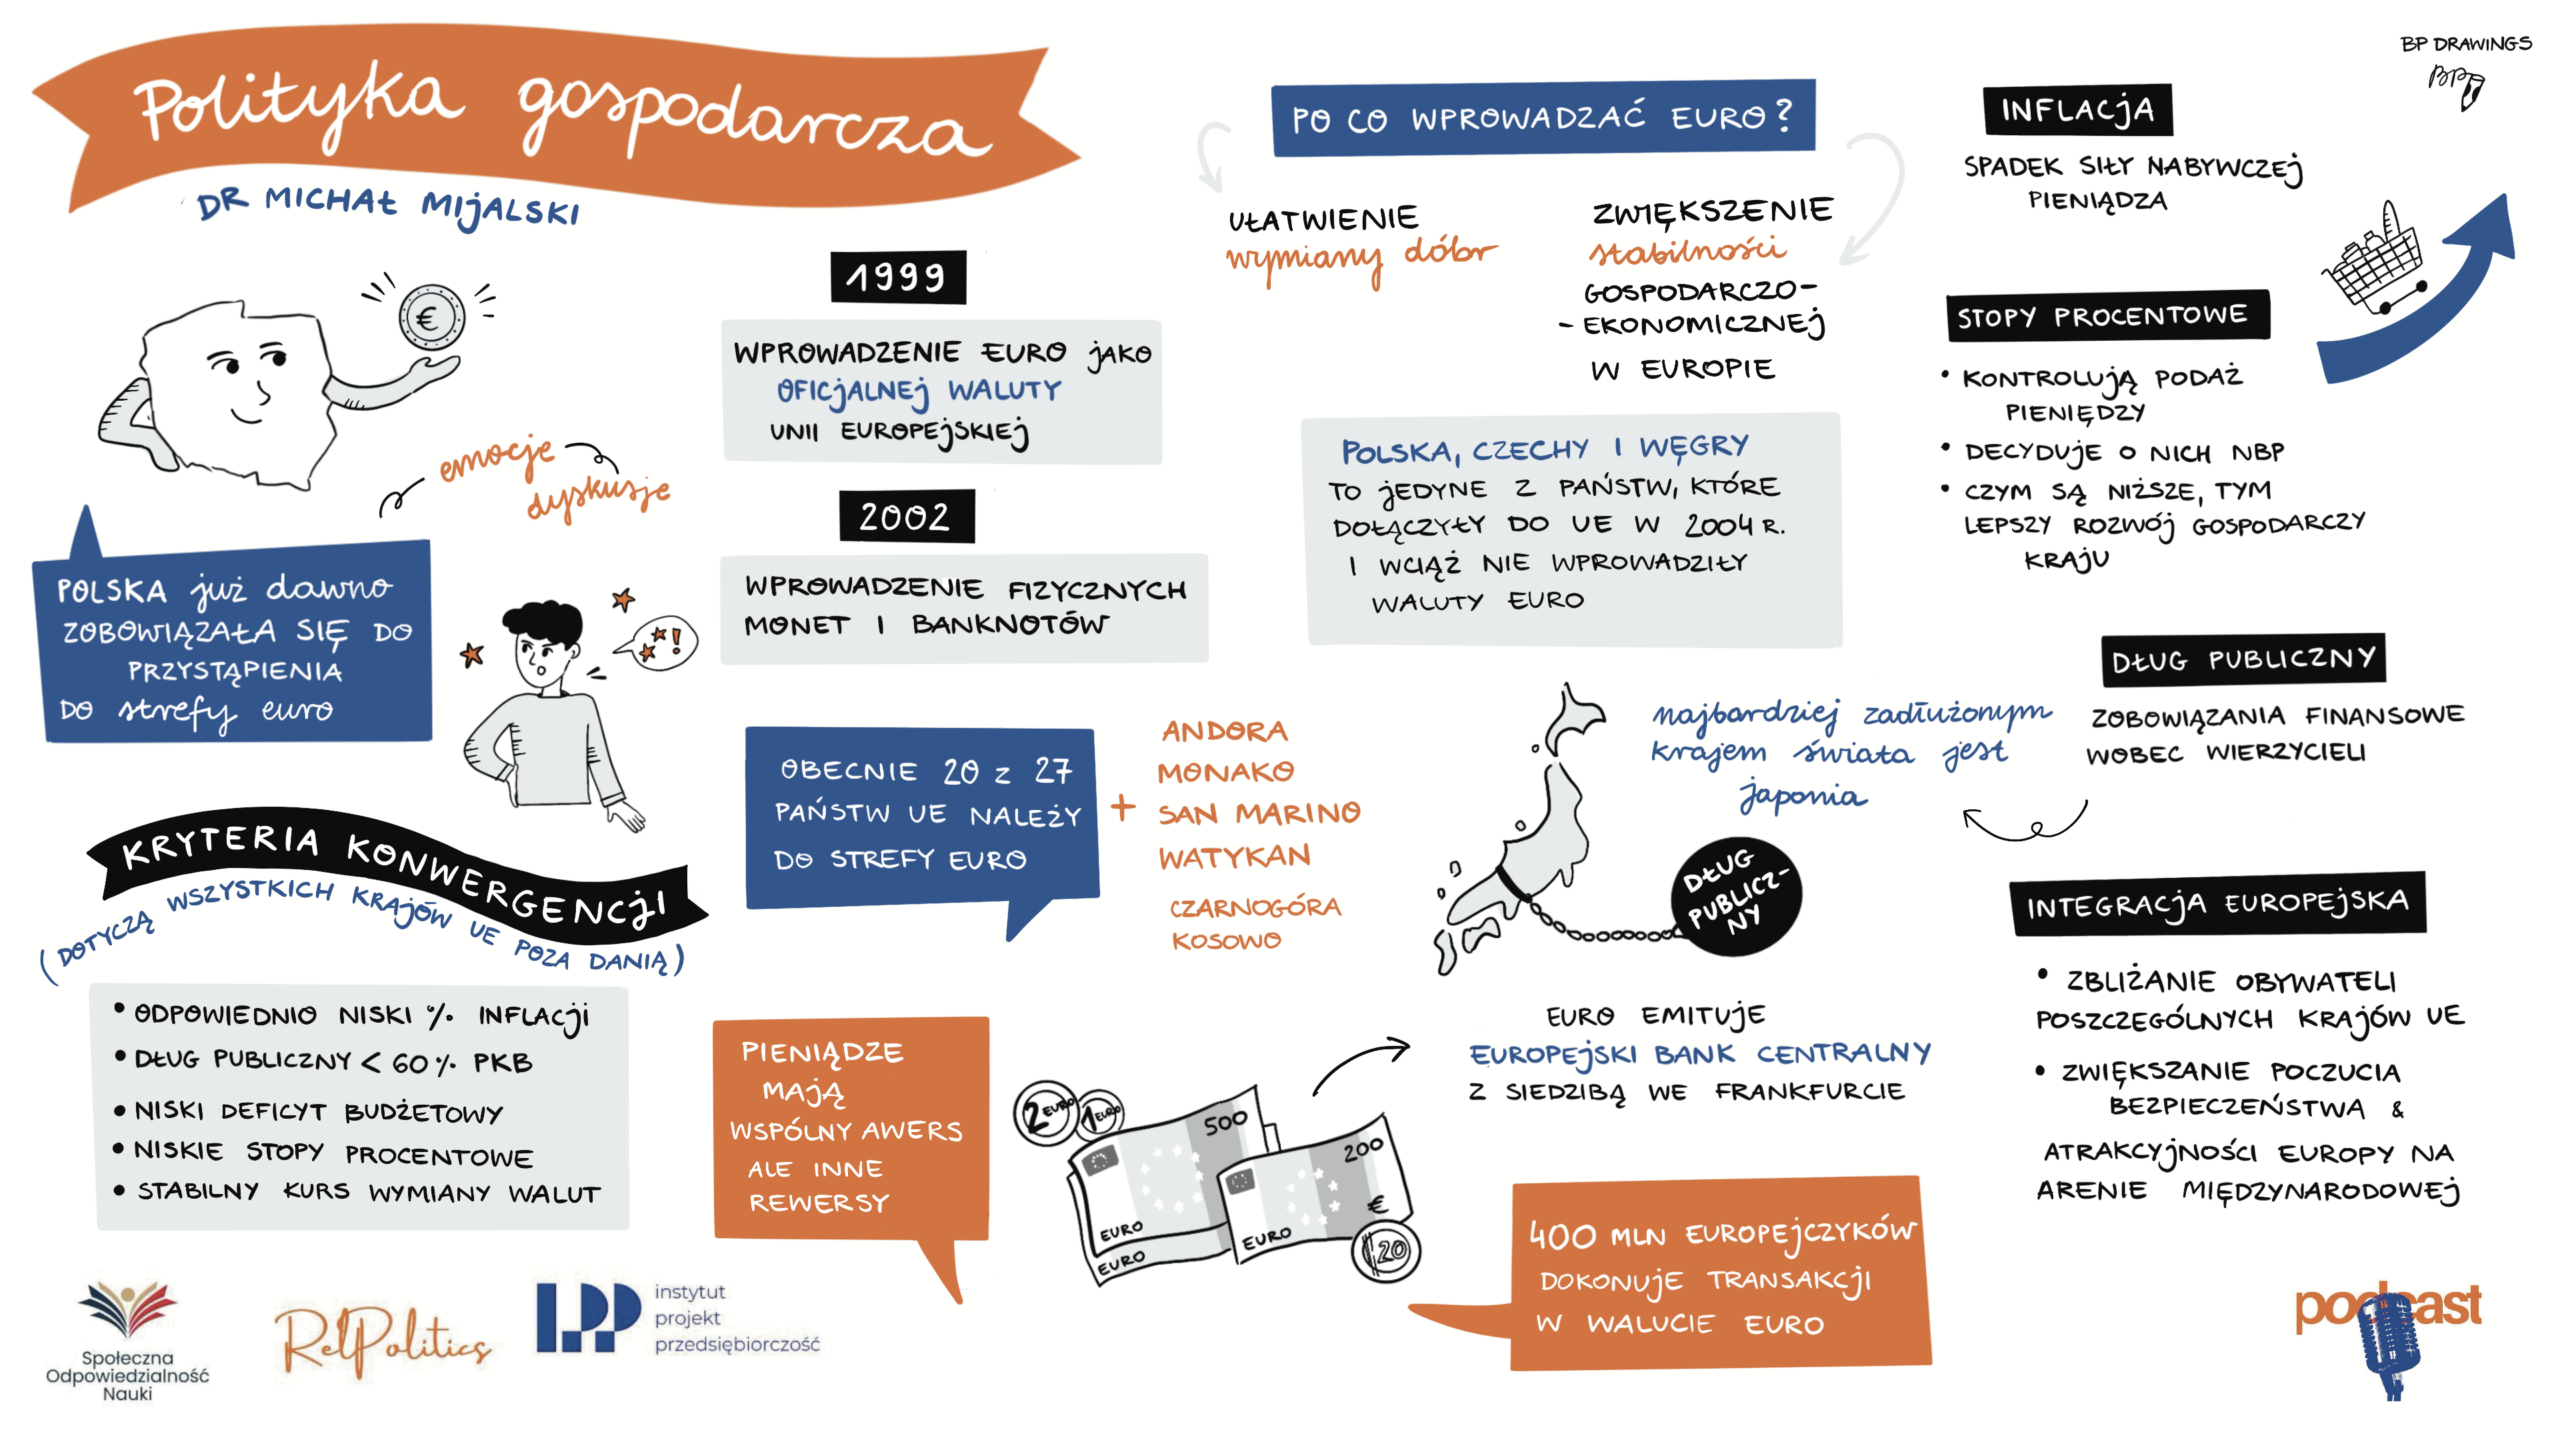 Polityka gospodarcza
DR MICHAŁ MIJALSKI
€
emocje
dyskusje
POLSKA już dawno
ZOBOWIĄZAŁA SIĘ DO
PRZYSTĄPIENIA
DO strefy euro
!
KRYTERIA KONWERGENCJI
(DOTYCZĄ WSZYSTKICH KRAJÓW UE POZA DANIĄ)
• ODPOWIEDNIO NISKI % INFLACJI
• DŁUG PUBLICZNY < 60% PKB
• NISKI DEFICYT BUDŻETOWY
• NISKIE STOPY PROCENTOWE
• STABILNY KURS WYMIANY WALUT
1999
WPROWADZENIE EURO JAKO
OFICJALNEJ WALUTY
UNII EUROPEJSKIEJ
2002
WPROWADZENIE FIZYCZNYCH
MONET I BANKNOTÓW
OBECNIE 20 z 27
PAŃSTW UE NALEŻY
DO STREFY EURO
+
ANDORA
MONAKO
SAN MARINO
WATYKAN
CZARNOGÓRA
KOSOWO
PIENIĄDZE
MAJĄ
WSPÓLNY AWERS
ALE INNE
REWERSY
2 EURO
1 EURO
500
EURO
EURO
200
€
EURO
20
PO CO WPROWADZAĆ EURO?
UŁATWIENIE
wymiany dóbr
ZWIĘKSZENIE
stabilności
GOSPODARCZO-
- EKONOMICZNEJ
W EUROPIE
POLSKA, CZECHY I WĘGRY
TO JEDYNE Z PAŃSTW, KTÓRE
DOŁĄCZYŁY DO UE W 2004 R.
I WCIĄŻ NIE WPROWADZIŁY
WALUTY EURO
najbardziej zadłużonym
krajem świata jest
japonia
DŁUG
PUBLICZ-
NY
EURO EMITUJE
EUROPEJSKI BANK CENTRALNY
Z SIEDZIBĄ WE FRANKFURCIE
400 MLN EUROPEJCZYKÓW
DOKONUJE TRANSAKCJI
W WALUCIE EURO
BP DRAWINGS
BP
INFLACJA
SPADEK SIŁY NABYWCZEJ
PIENIĄDZA
STOPY PROCENTOWE
• KONTROLUJĄ PODAŻ
PIENIĘDZY
• DECYDUJE O NICH NBP
• CZYM SĄ NIŻSZE, TYM
LEPSZY ROZWÓJ GOSPODARCZY
KRAJU
DŁUG PUBLICZNY
ZOBOWIĄZANIA FINANSOWE
WOBEC WIERZYCIELI
INTEGRACJA EUROPEJSKA
• ZBLIŻANIE OBYWATELI
POSZCZEGÓLNYCH KRAJÓW UE
• ZWIĘKSZANIE POCZUCIA
BEZPIECZEŃSTWA &
ATRAKCYJNOŚCI EUROPY NA
ARENIE MIĘDZYNARODOWEJ
Społeczna
Odpowiedzialność
Nauki
RelPolitics
IPP
instytut
projekt
przedsiębiorczość
podcast